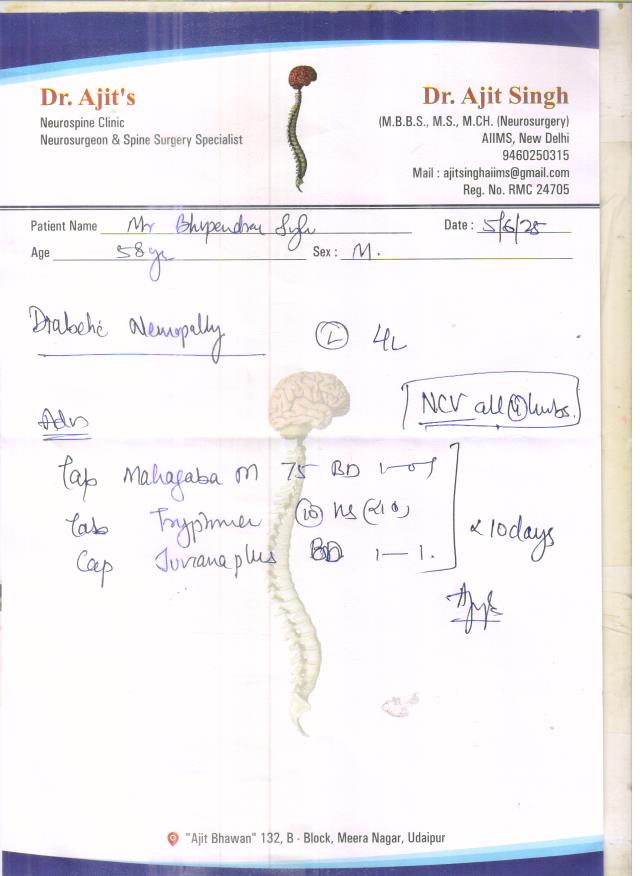 Dr. Ajit's
Neurospine Clinic
Neurosurgeon & Spine Surgery Specialist
Dr. Ajit Singh
(M.B.B.S., M.S., M.CH. (Neurosurgery)
AIIMS, New Delhi
9460250315
Mail : ajitsinghaiims@gmail.com
Reg. No. RMC 24705
Patient Name Mr Bhupendra Date : 5/6/25
Age 58 yr Sex : M.
Diabetic Neuropathy
L
NCV all 4 limbs.
Adv
Cap Mahagaba M 75 BD
Tab 10 HS
Cap plus BD 1—1.
x 10 days
"Ajit Bhawan" 132, B - Block, Meera Nagar, Udaipur